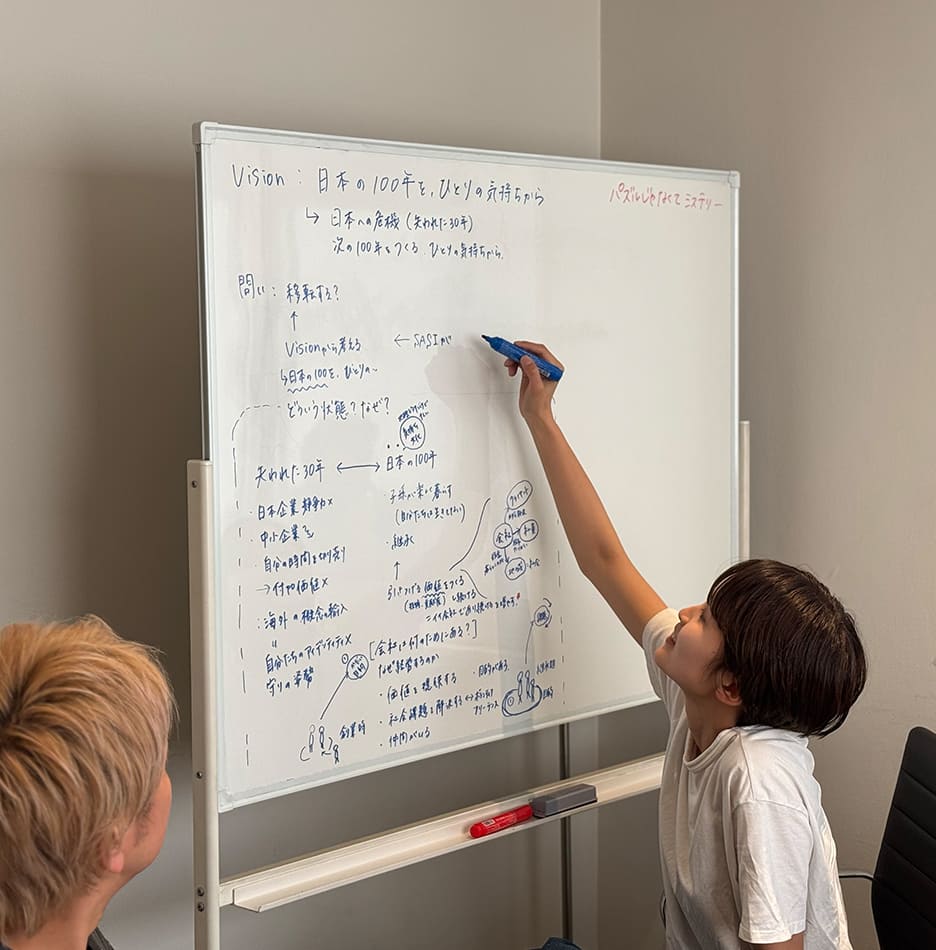 Vision : 日本の100年を、ひとりの気持ちから
パズルじゃなくて ミステリー
↳ 日本への危機 (失われた30年)
次の100年をつくる ひとりの気持ちから.
問い : 移転する?
↑
Visionから考える ← SASIが
↳日本の100を、ひとりの~
・どういう状態? なぜ?
失われた30年 ⟷ 日本の100年
・日本企業 競争力×
・中小企業
・自分の時間を切り売り
→ 付加価値×
・海外の概念の輸入
〃
自分たちのアイデンティティ×
守りの姿勢
・子孫が楽しく暮らす
(自分たちも生きてない)
・継承
↑
引き上げる 価値をつくる
会社
[会社は何のためにある?]
なぜ経営するのか
・価値を提供する
・社会課題を解決する
フリーランス
・仲間がいる
・目的がある
創業時